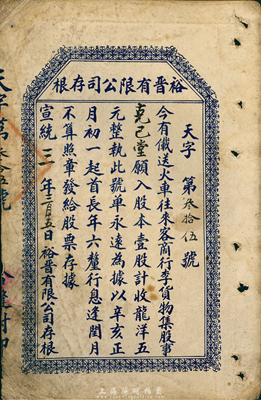 裕晋有限公司存根
天字 第叁拾伍號
今有儎送火車往來客商行李貨物集股事
克己堂願入股本壹股計收龍洋五
元整執此號單永遠為據以辛亥正
月初一起首長年六釐行息逢閏月
不算照章發給股票存據
宣統三年二月五日裕晋有限公司存根
天字第叁拾五號